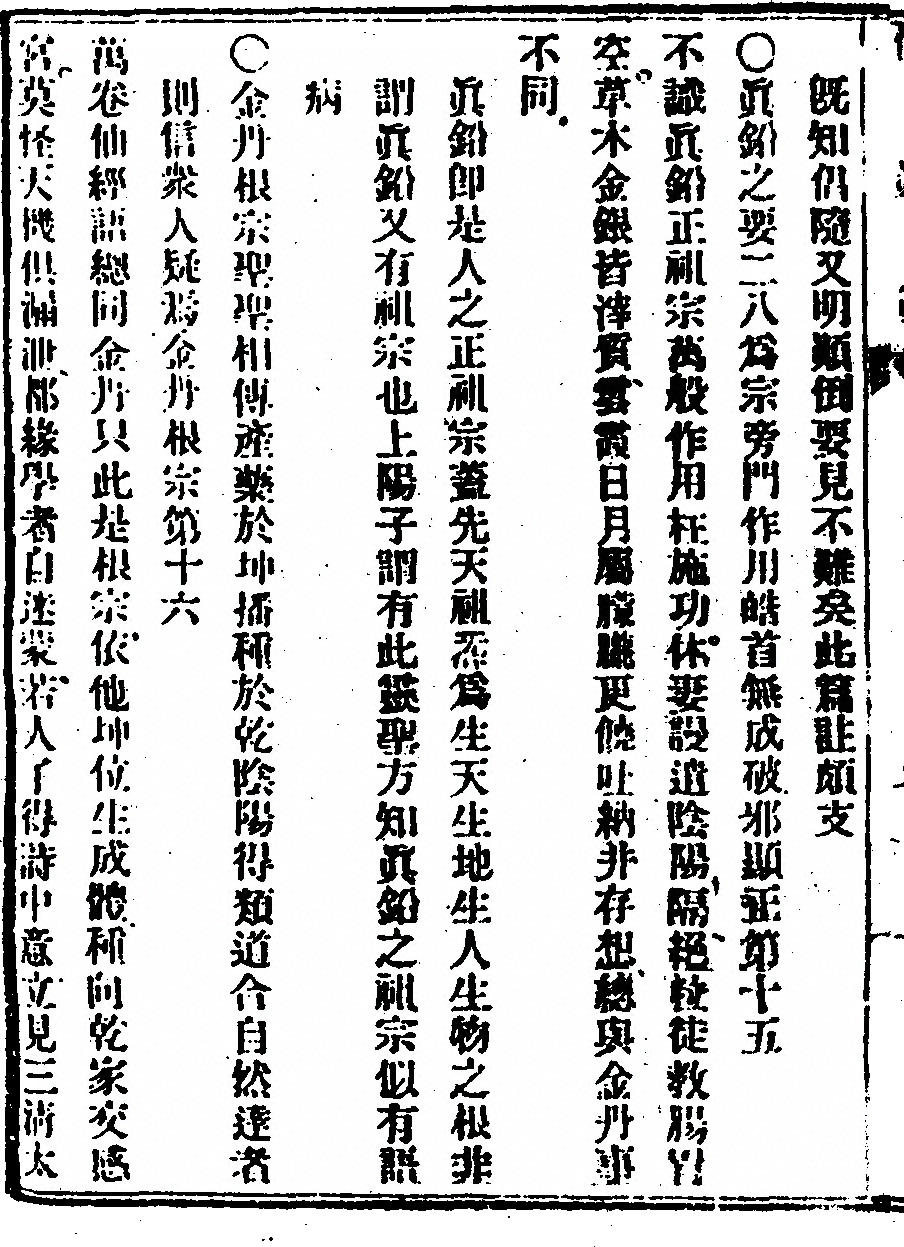 既知侶隨又明顛倒要見不難矣此篇註頗支
〇眞鉛之要二八爲宗旁門作用皓首無成破邪顯正第十五
不識眞鉛正祖宗萬般作用枉施功休妻謾遣陰陽隔絕粒徒教腸胃
空草木金銀皆滓質雲霞日月屬朦朧更饒吐納并存想總與金丹事
不同
眞鉛卽是人之正祖宗蓋先天祖炁爲生天生地生人生物之根非
謂眞鉛又有祖宗也上陽子謂有此靈聖方知眞鉛之祖宗似有語
病
〇金丹根宗聖聖相傳產藥於坤播種於乾陰陽得類道合自然達者
則信衆人疑焉金丹根宗第十六
萬卷仙經語總同金丹只此是根宗依他坤位生成體種向乾家交感
宮莫怪天機俱漏泄都緣學者自迷蒙若人了得詩中意立見三清太